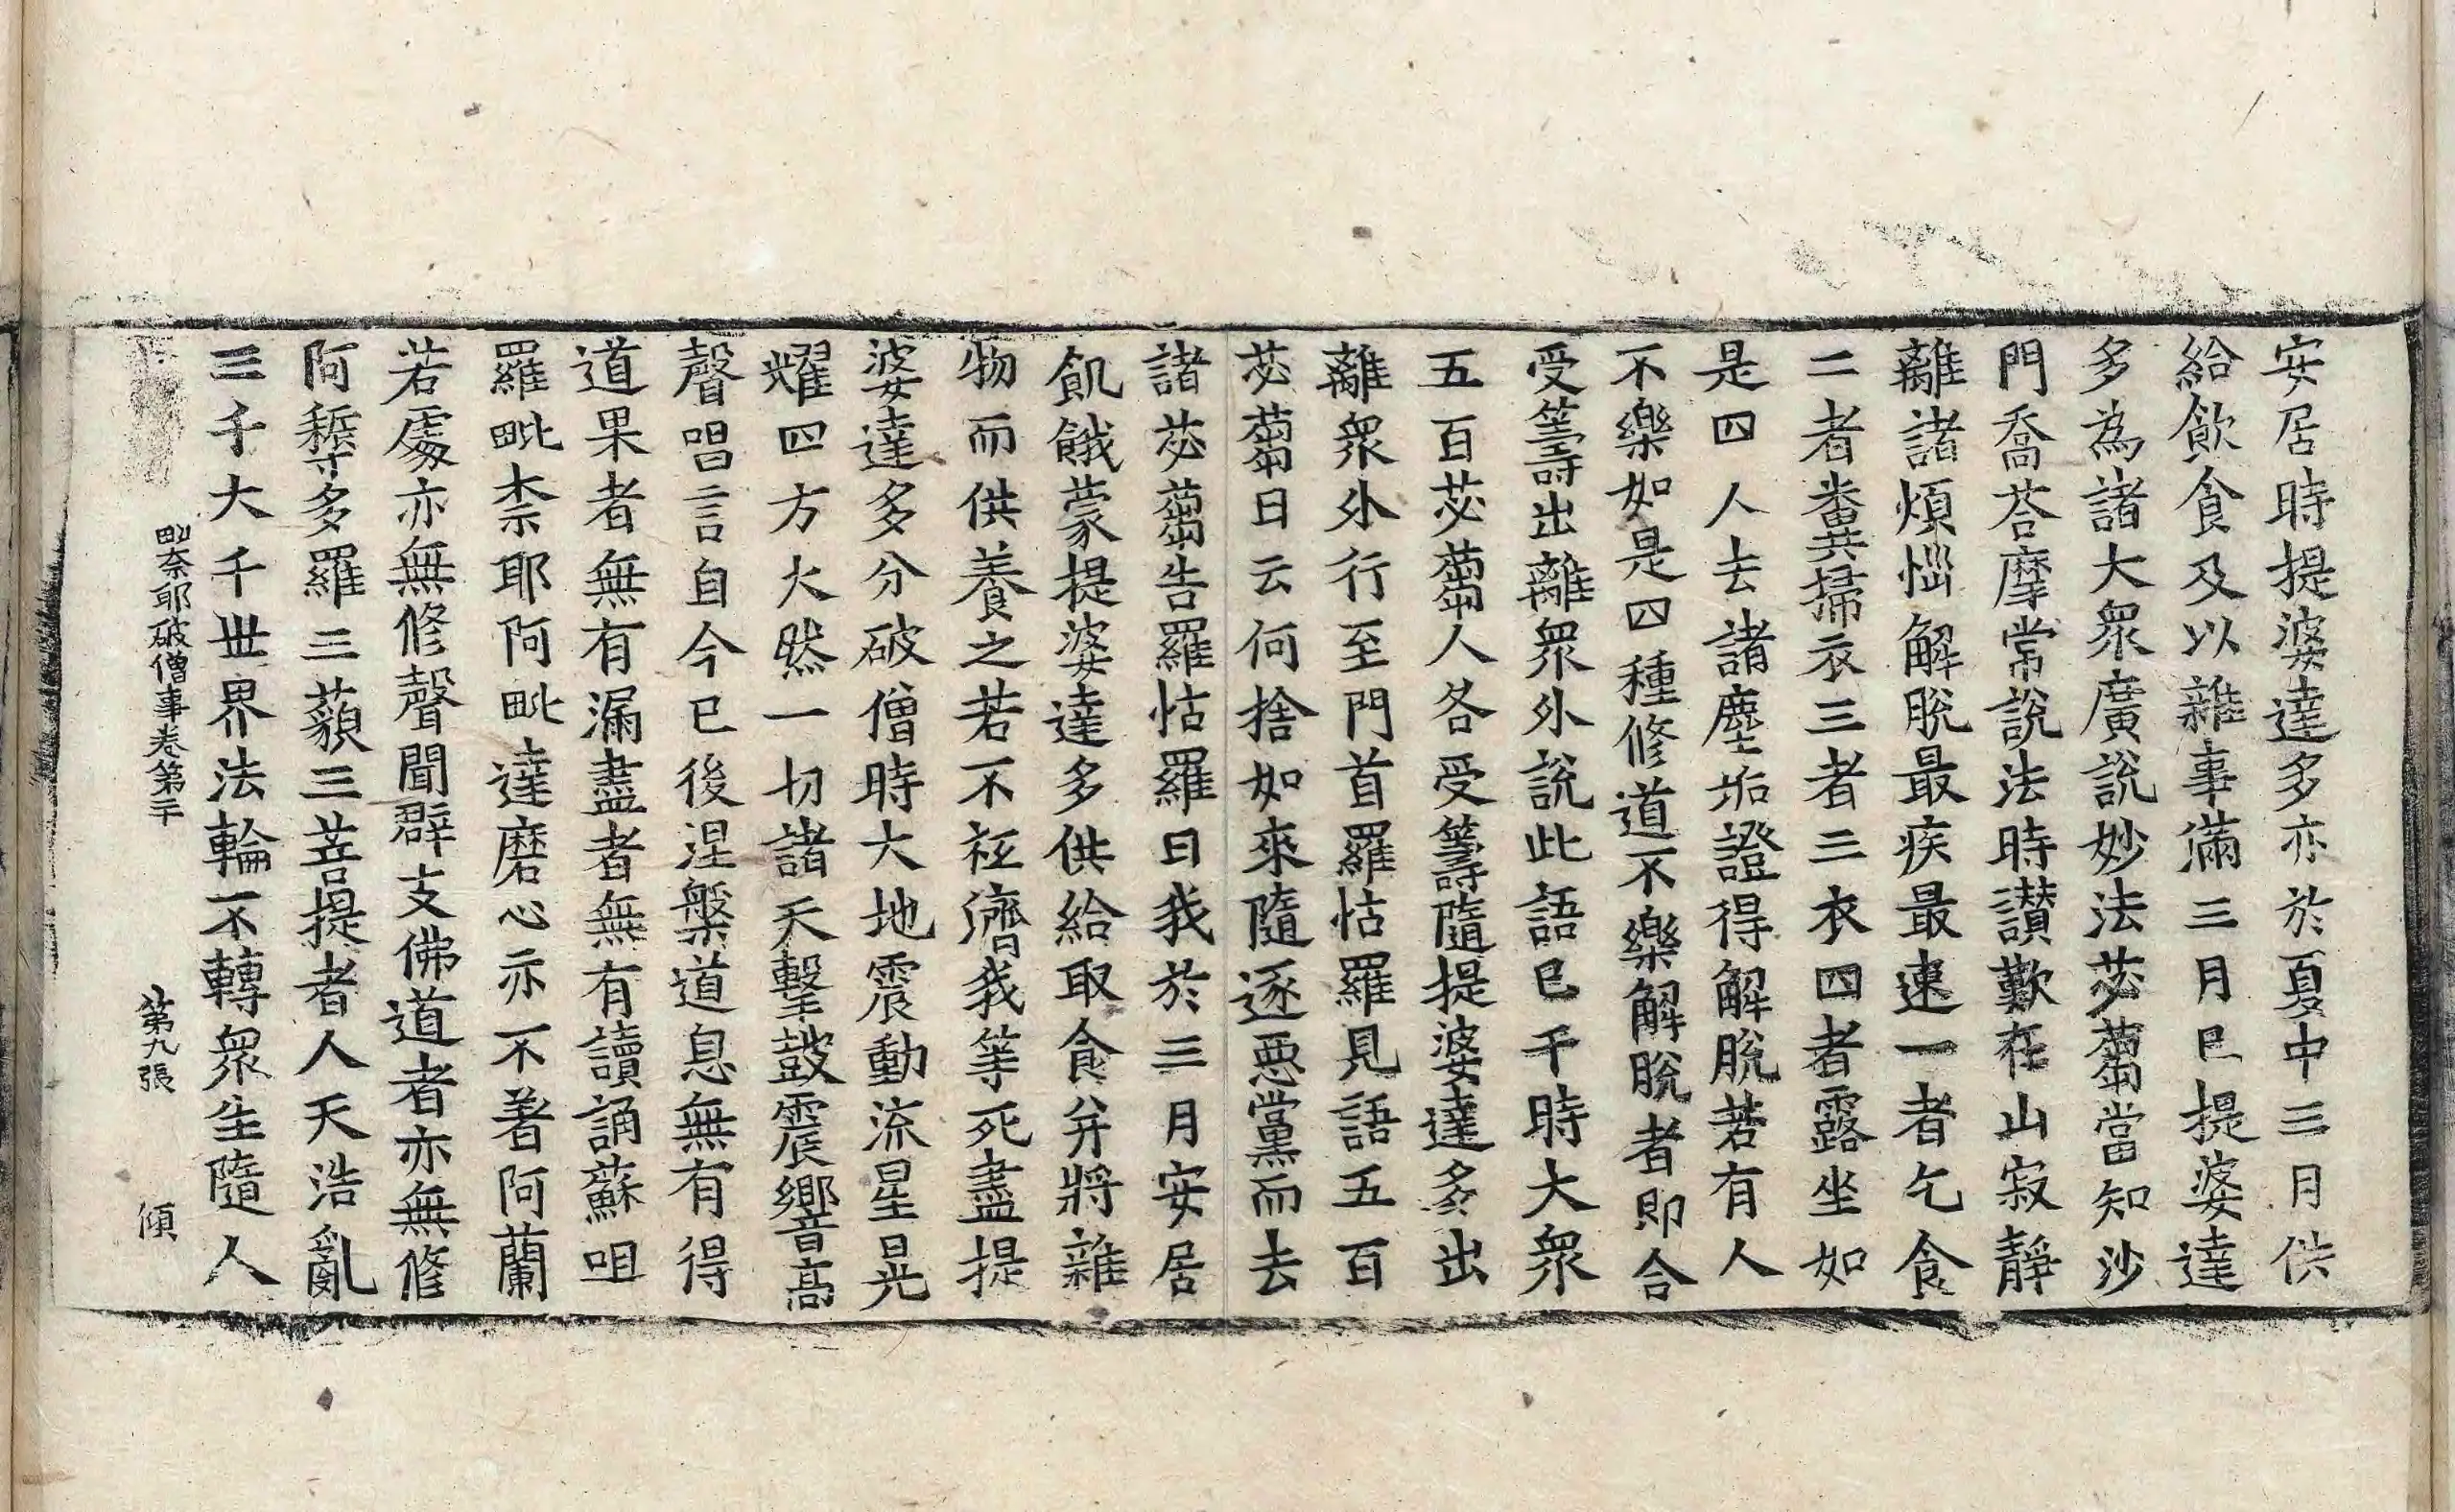 安居時提婆達多亦於夏中三月供
給飮食及以雜事滿三月已提婆達
多為諸大衆廣說妙法苾蒭當知沙
門喬荅摩常說法時讃歎在山寂靜
離諸煩惱解脫最疾最速一者乞食
二者糞掃衣三者三衣四者露坐如
是四人去諸塵垢證得解脫若有人
不樂如是四種修道不樂解脫者即合
受籌出離衆外說此語已千時大衆
五百苾蒭人各受籌隨提婆達多出
離衆外行至門首羅怙羅見語五百
苾蒭曰云何捨如來隨逐惡黨而去
諸苾蒭告羅怙羅曰我於三月安居
飢餓蒙提婆達多供給取食并將雜
物而供養之若不拯濟我等死盡提
婆達多分破僧時大地震動流星晃
耀四方大然一切諸天擊鼓震響高
聲唱言自今已後涅槃道息無有得
道果者無有漏盡者無有讀誦蘇呾
羅毗柰耶阿毗達磨心亦不著阿蘭
若處亦無修聲聞辟支佛道者亦無修
阿耨多羅三藐三菩提者人天浩亂
三千大千世界法輪不轉衆生隨人
毗奈耶破僧事卷第二十 第九張 傾